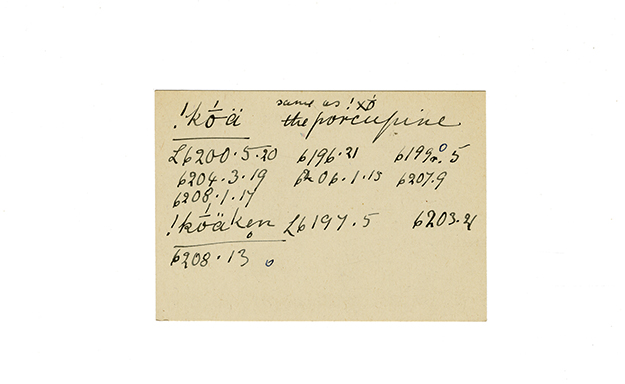 same as !xṓ
!kṓä the porcupine
L6200.5.20 6196.21 5
6204.3.19 06.1.13 6207.9
6208.1.17
!kṓäkẹn L6197.5 6203.21
6208.13